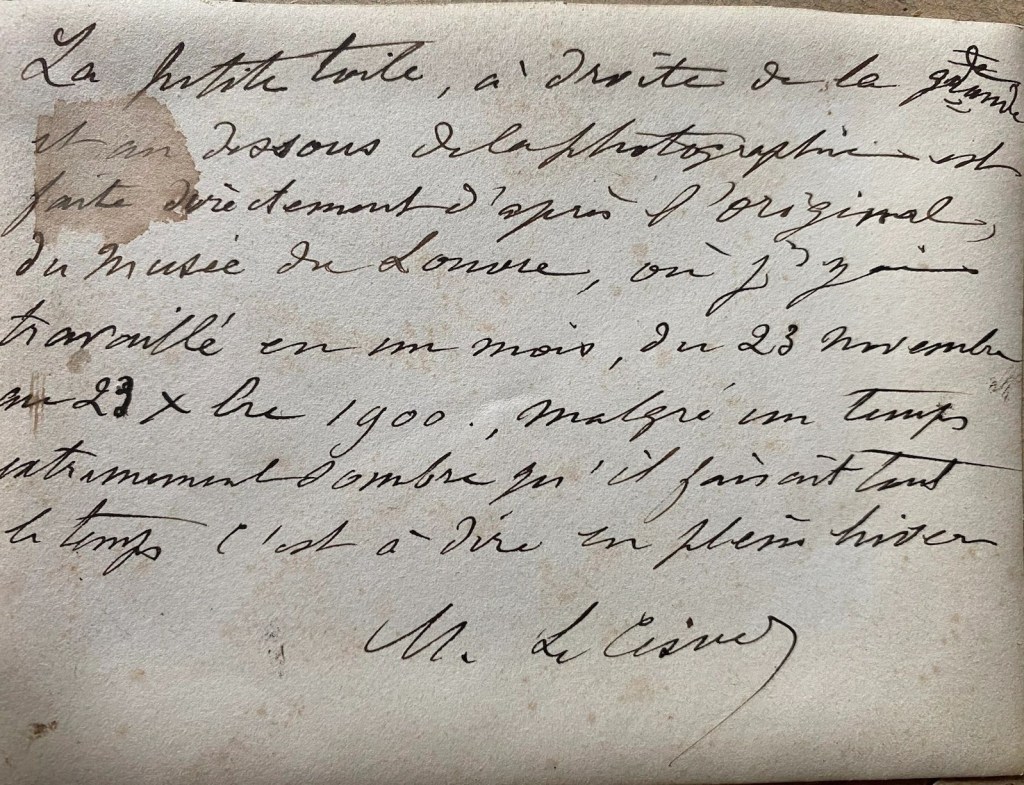 La petite toile, à droite de la grande
et au dessous de la photographie est
faite directement d'après l'original,
du Musée du Louvre, où j'y ai
travaillé en un mois, du 23 novembre
au 23 Xbre 1900., malgré un temps
extrmement sombre qu'il faisait tout
le temps c'est à dire en plein hiver
M. Le